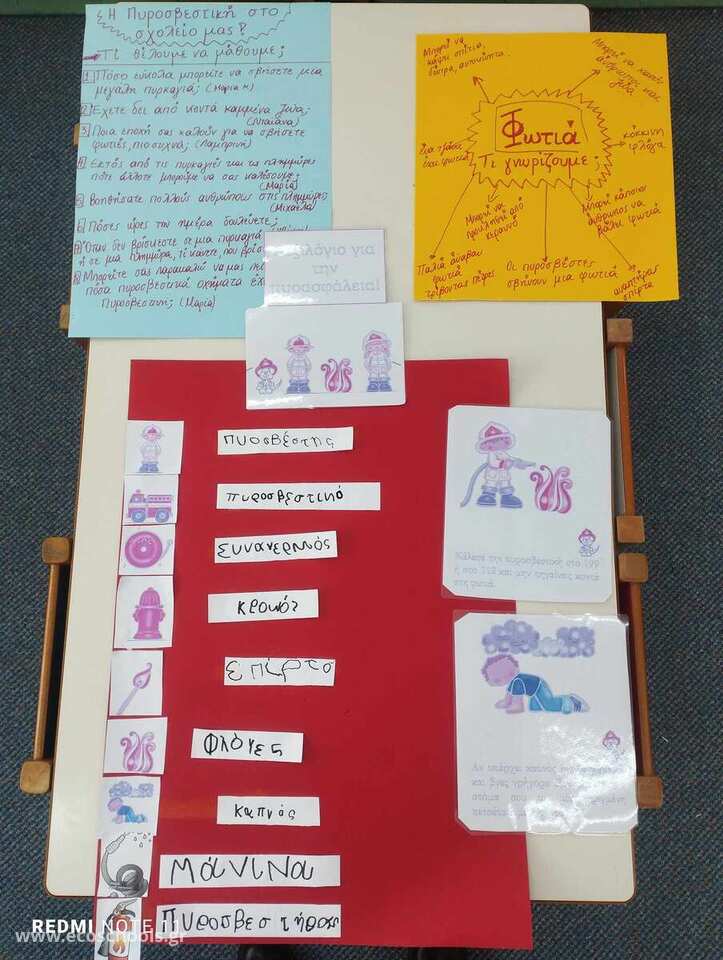 Η Πυροσβεστική στο
σχολείο μας!
Τι θέλουμε να μάθουμε;
1) Πόσο εύκολα μπορείτε να σβήσετε μια
μεγάλη πυρκαγιά; (Μαρία Μ)
2) Έχετε δει από κοντά καμμένα ζώα;
3) Ποια εποχή σας καλούν για να σβήσετε
φωτιές, πιο συχνά; (Λαμπρινή)
4) Εκτός από τις πυρκαγιές και τις πλημμύρες
πότε άλλοτε μπορούμε να σας καλέσουμε;
(Μαρία)
5) Βοηθήσατε πολλούς ανθρώπους στις πλημμύρες
(Μιχαέλα)
6) Πόσες ώρες την ημέρα δουλεύετε;
7) Όταν δεν βρίσκεστε σε μια πυρκαγιά
ή σε μια πλημμύρα, τι κάνετε, που βρίσ
8) Μπορείτε σας παρακαλώ να μας πεί
πόσα πυροσβεστικά οχήματα έχ
Πυροσβεστική; (Μαρία)
Μπορεί να
κάψει σπίτια,
δέντρα, αυτοκίνητα
Μπορεί να κάψει
ανθρώπους και
ζώα
Φωτιά
Τι γνωρίζουμε;
κόκκινη
φλόγα
Στα τζάκια
έχει φωτιά
Μπορεί να
προκληθεί από
κεραυνό
Μπορεί κάποιος
άνθρωπος να
βάλει φωτιά
Παλιά άναβαν
φωτιά
τρίβοντας πέτρες
Οι πυροσβέστες
σβήνουν μια φωτιά
αναπτήρας
σπίρτα
λόγιο για
την
πυρασφάλεια!
πυοσβέστης
πυροσβεστικό
Συναγερμός
κρουνός
Σπίρτο
Φλόγες
καπνός
Μάνικα
Πυροσβεστήρας
Κάλεσε την πυροσβεστική στο 199
ή στο 112 και μην πηγαίνεις κοντά
στη φωτιά.
Αν υπάρχει καπνός
και βγες γρήγορα
REDMI NOTE 11
www.ecoschools.gr